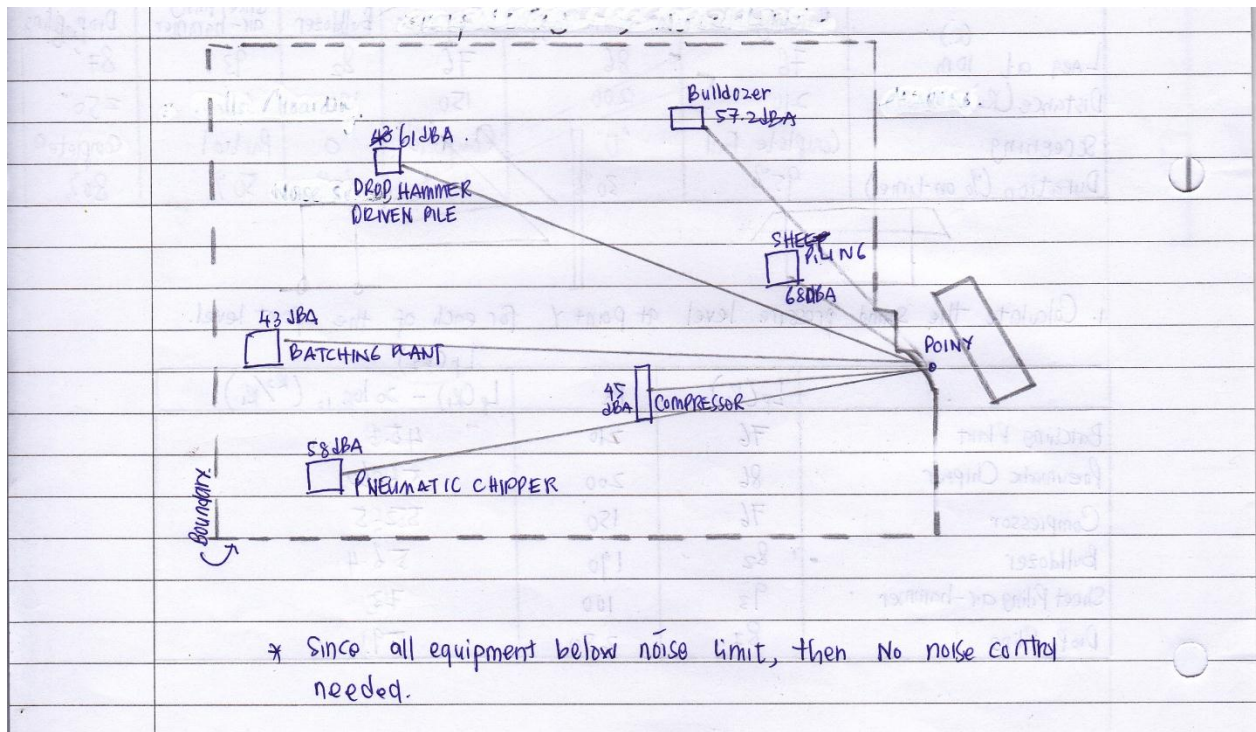 Bulldozer
57.2 dBA
61 dBA.
DROP HAMMER
DRIVEN PILE
SHEET
PILING
68 dBA
43 dBA
BATCHING PLANT
POINY
45
dBA
COMPRESSOR
58 dBA
PNEUMATIC CHIPPER
Boundary
* Since all equipment below noise limit, then No noise control
needed.